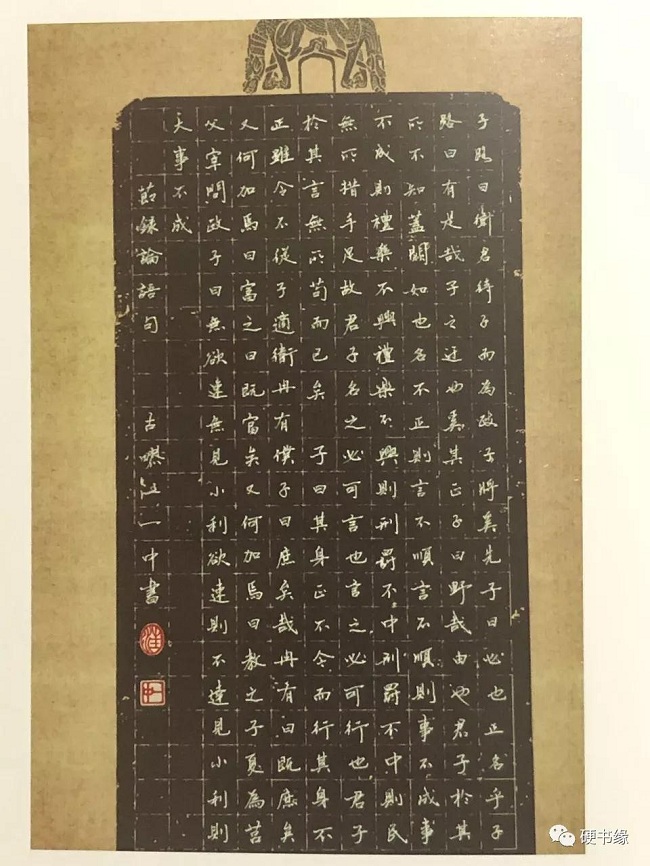 子路曰衛君待子而為政子將奚先子曰必也正名乎子
路曰有是哉子之迂也奚其正子曰野哉由也君子於其
所不知蓋闕如也名不正則言不順言不順則事不成事
不成則禮樂不興禮樂不興則刑罰不中刑罰不中則民
無所措手足故君子名之必可言也言之必可行也君子
於其言無所苟而已矣 子曰其身正不令而行其身不
正雖令不從子適衛冉有僕子曰庶矣哉冉有曰既庶矣
又何加焉曰富之曰既富矣又何加焉曰教之子夏為莒
父宰問政子曰無欲速無見小利欲速則不達見小利則
大事不成
節錄論語句 古 一中書
硬书缘